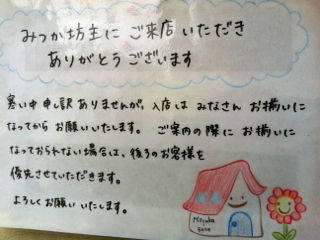 みつか坊主に ご来店 いただき
ありがとう ございます
寒い中 申し訳 ありませんが、入店は みなさん お揃いに
なってから お願いいたします。 ご案内の際に お揃いに
なっておられない場合は、後ろのお客様を
優先させていただきます。
よろしくお願い いたします。
Mitsuka
Bose